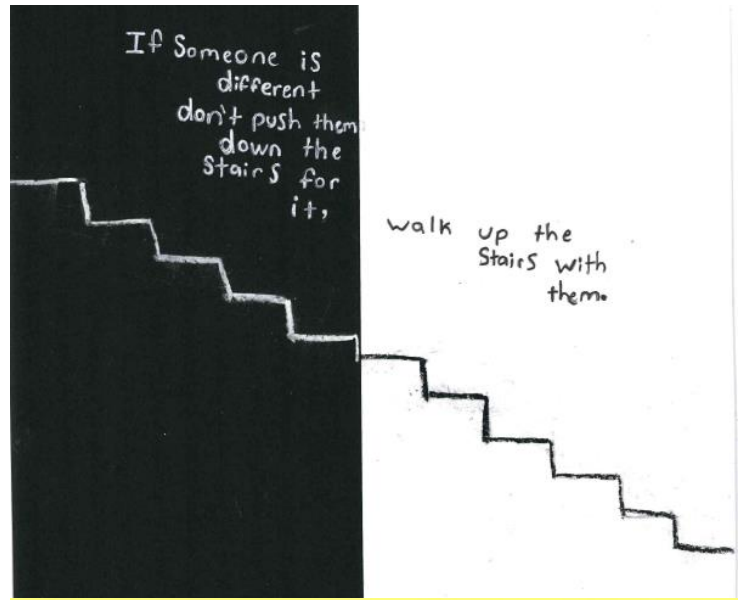 If Someone is
different
don't push them
down the
Stairs for
it,
walk up the
Stairs with
them.